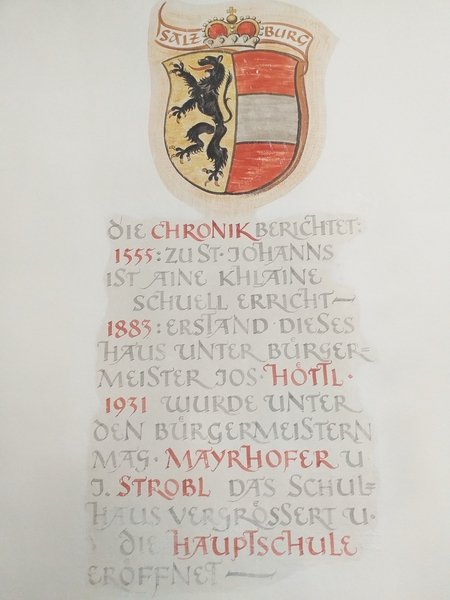 SALZ BURG
DIE CHRONIK BERICHTET:
1555: ZU ST· JOHANNS
IST AINE KHLAINE
SCHUELL ERRICHT—
1883: ERSTAND DIESES
HAUS UNTER BÜRGER=
MEISTER JOS· HÖTTL·
1931 WURDE UNTER
DEN BÜRGERMEISTERN
MAG· MAYRHOFER U
J. STROBL DAS SCHUL=
HAUS VERGRÖSSERT U·
DIE HAUPTSCHULE
ERÖFFNET —